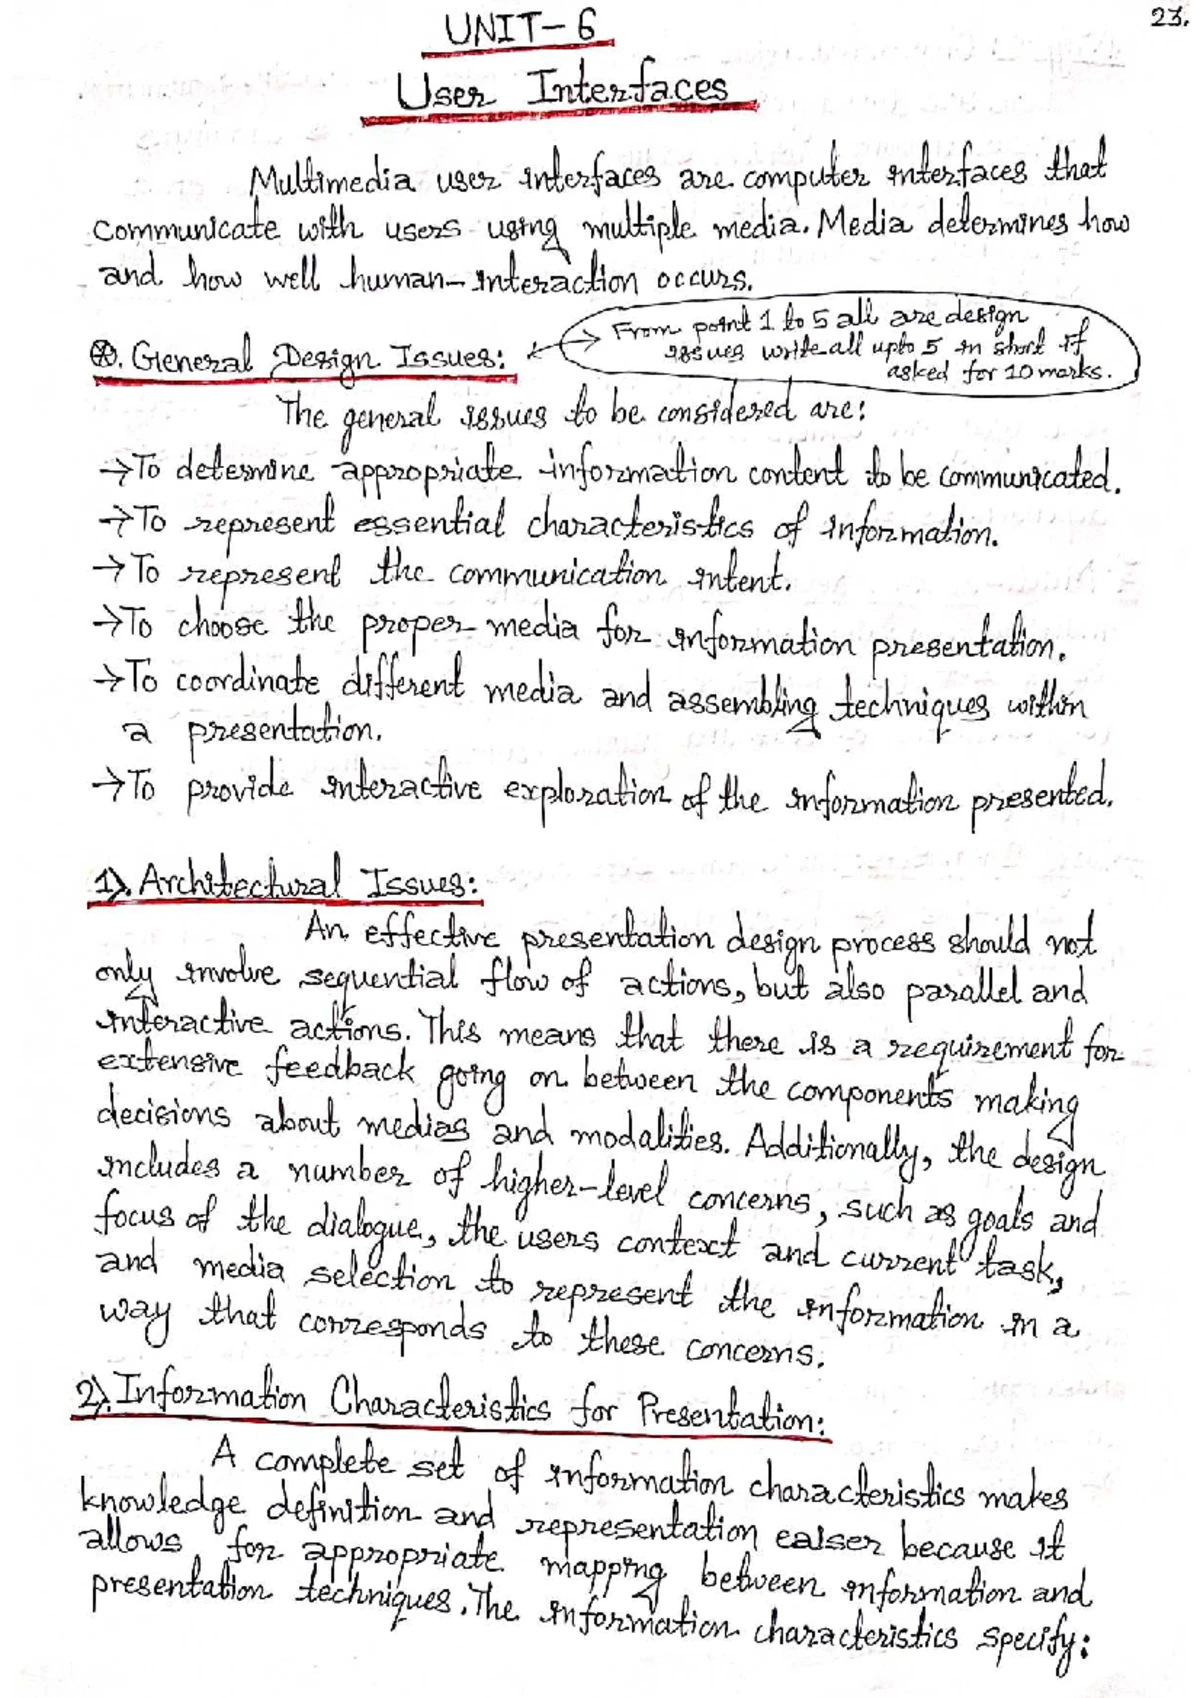 23.
UNIT-6
User Interfaces
Multimedia user interfaces are computer interfaces that
communicate with users using multiple media. Media determines how
and how well human-interaction occurs.
⊛. General Design Issues:
From point 1 to 5 all are design
issues write all upto 5 in short if
asked for 10 marks.
The general issues to be considered are:
→To determine appropriate information content to be communicated.
→To represent essential characteristics of information.
→To represent the communication intent.
→To choose the proper media for information presentation.
→To coordinate different media and assembling techniques within
a presentation.
→To provide interactive exploration of the information presented.
1). Architectural Issues:
An effective presentation design process should not
only involve sequential flow of actions, but also parallel and
interactive actions. This means that there is a requirement for
extensive feedback going on between the components making
decisions about medias and modalities. Additionally, the design
includes a number of higher-level concerns, such as goals and
focus of the dialogue, the users context and current task,
and media selection to represent the information in a
way that corresponds to these concerns.
2). Information Characteristics for Presentation:
A complete set of information characteristics makes
knowledge definition and representation eaiser because it
allows for appropriate mapping between information and
presentation techniques. The information characteristics specify: